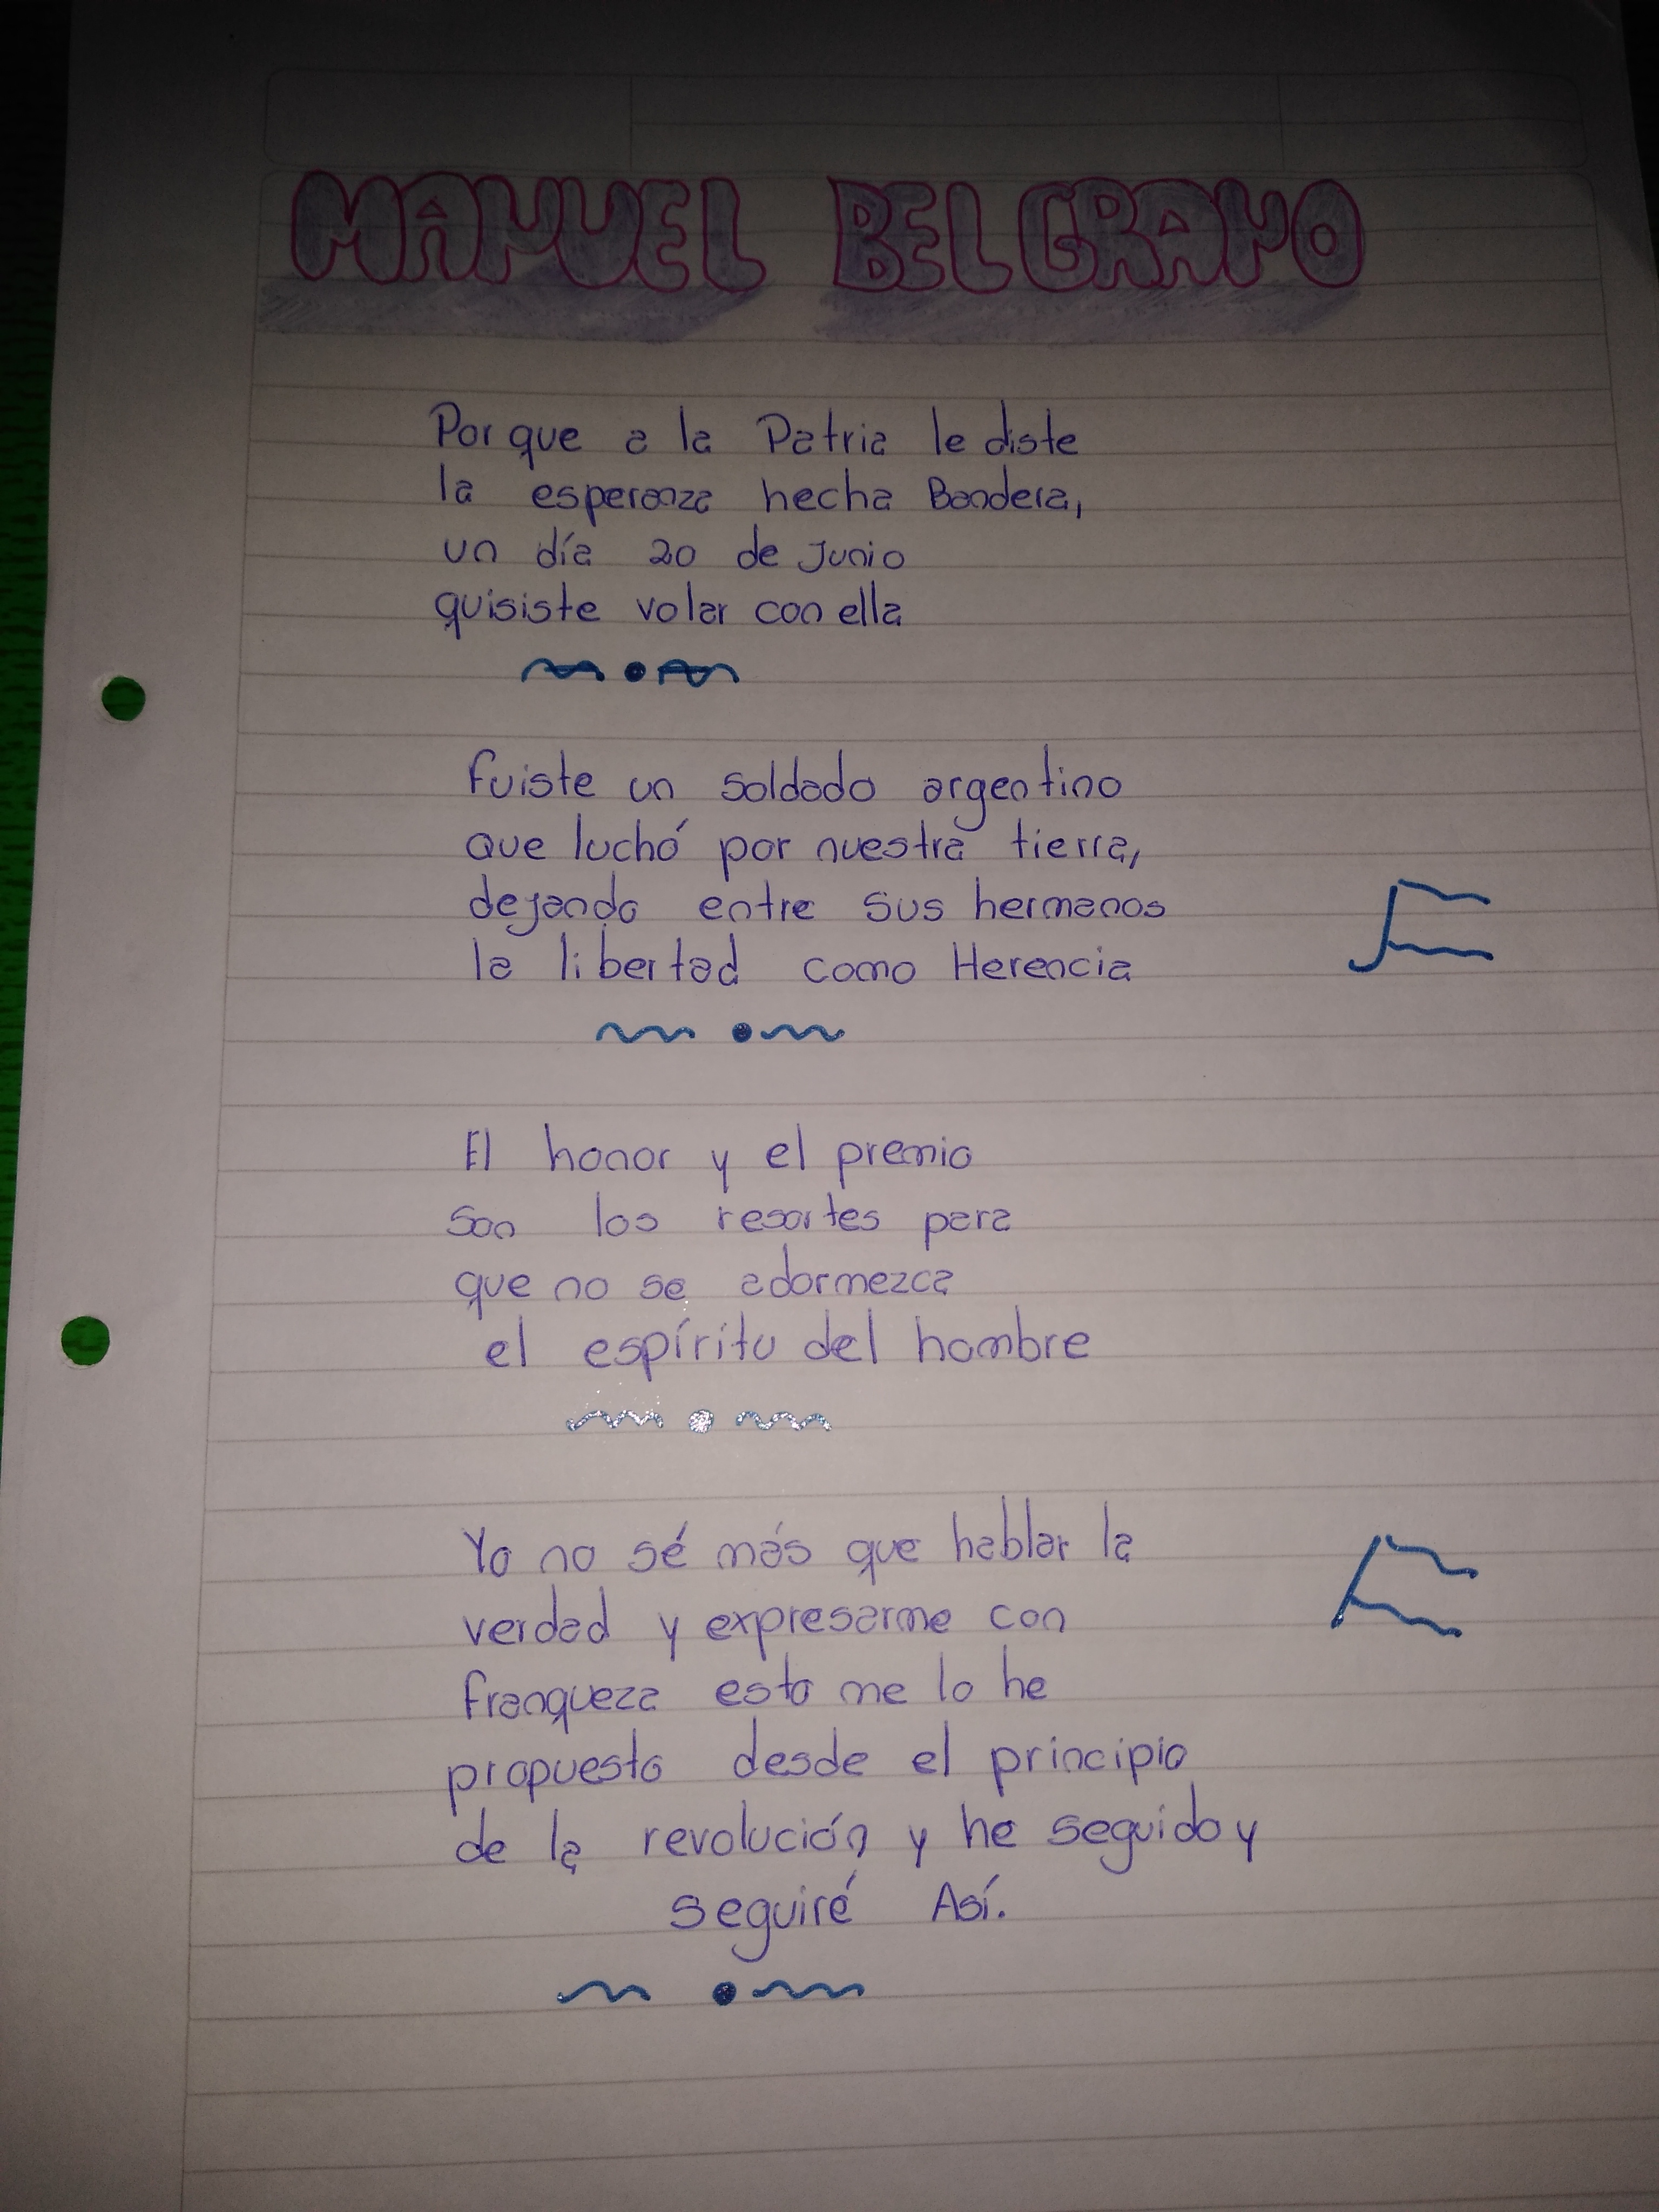 MANUEL BELGRANO
Por que a la Patria le diste
la esperanza hecha Bandera,
un día 20 de Junio
quisiste volar con ella
Fuiste un soldado argentino
que luchó por nuestra tierra,
dejando entre sus hermanos
la libertad como Herencia
El honor y el premio
son los resortes para
que no se adormezca
el espíritu del hombre
Yo no sé más que hablar la
verdad y expresarme con
franqueza esto me lo he
propuesto desde el principio
de la revolución y he seguido y
seguiré Así.